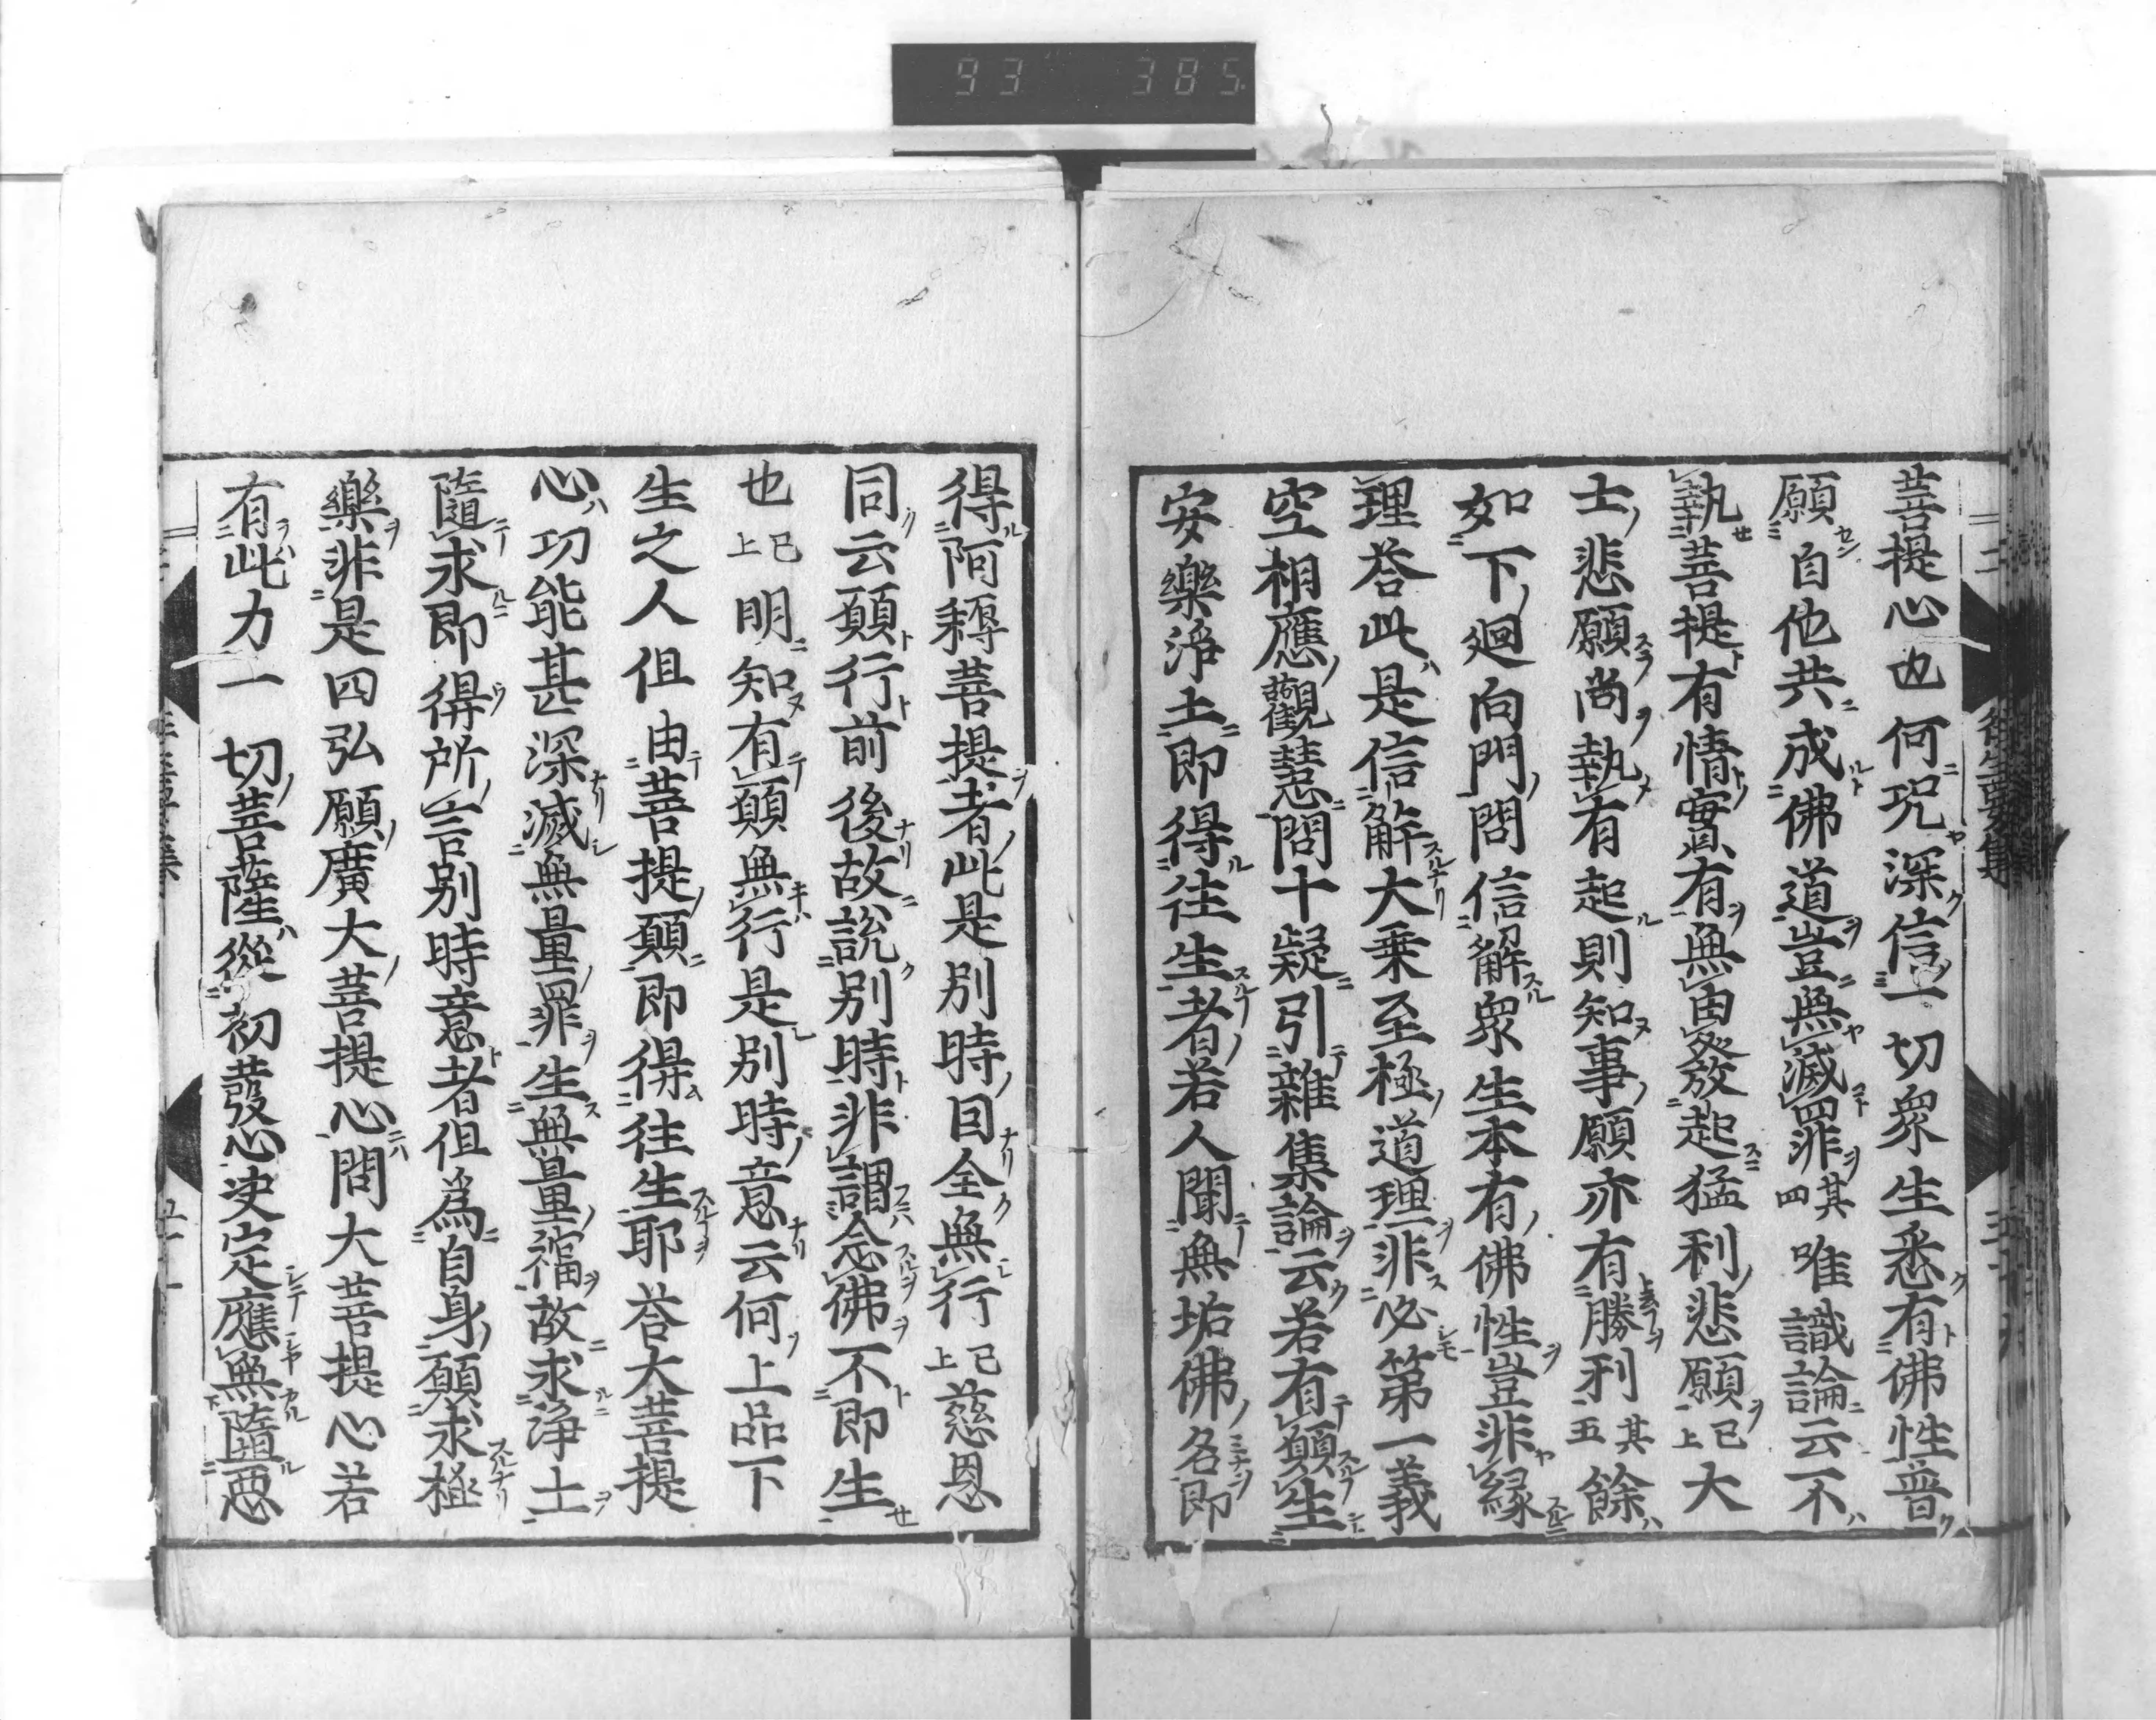 93 385
菩提心也何況深信一切衆生悉有佛性普
願自他共成佛道豈無滅罪其四唯識論云不
執菩提有情實有無由發起猛利悲願已上大
士悲願尚執有起則知事願亦有勝利其五餘
如下廻向門問信解衆生本有佛性豈非縁
理答此是信解大乗至極道理非必第一義
空相應觀慧問十疑引雜集論云若有願生
安樂淨土即得往生者若人聞無垢佛名即
得阿耨菩提者此是別時因全無行已上慈恩
同云願行前後故説別時非謂念佛不即生
也已上明知有願無行是別時意云何上品下
生之人但由菩提願即得往生耶答大菩提
心功能甚深滅無量罪生無量福故求淨土
隨求即得所言別時意者但爲自身願求極
樂非是四弘願廣大菩提心問大菩提心若
有此力一切菩薩從初發心決定應無墮惡